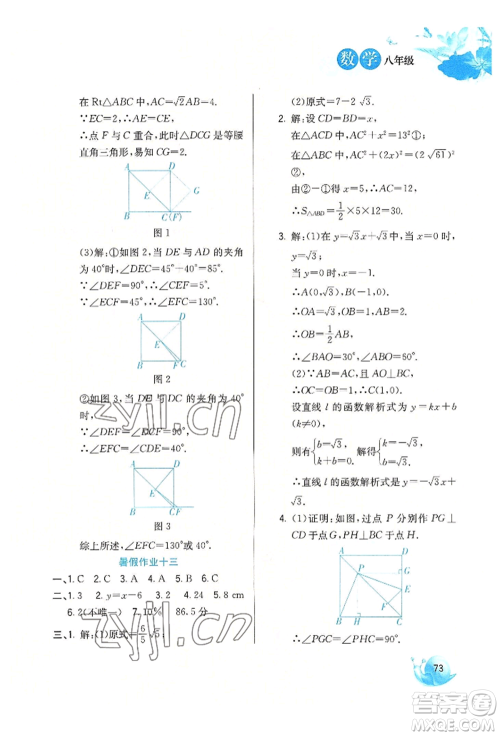 数学 八年级
在 Rt△ABC 中，AC=√2AB=4.
∵EC=2，∴AE=CE，
∴点 F 与 C 重合，此时△DCG 是等腰
直角三角形，易知 CG=2.
A D E G B C(F)
图 1
(3)解：①如图 2，当 DE 与 AD 的夹角
为 40°时，∠DEC=45°+40°=85°.
∵∠DEF=90°，∴∠CEF=5°.
∵∠ECF=45°，∴∠EFC=130°.
A D E B F C
图 2
②如图 3，当 DE 与 DC 的夹角为
40°时，
∵∠DEF=∠DCF=90°，
∴∠EFC=40°.
A D E B C F
图 3
综上所述，∠EFC=130°或 40°.
暑假作业十三
一、1. C 2. C 3. A 4. B 5. B 6. C
二、1. 3 2. y=x-6 3. 24 4. 24 5. 8 cm
6. 2(不唯一) 7. 10% 8. 86.5 分
三、1. 解：(1)原式=6/5√5；
(2)原式=7-2√3.
2. 解：设 CD=BD=x，
在△ACD 中，AC²+x²=13²①；
在△ABC 中，AC²+(2x)²=(2√61)²
②，
由②-①得 x=5，∴AC=12.
∴S△ABD=1/2×5×12=30.
3. 解：(1)在 y=√3x+√3中，
当 y=0 时，x=-1；
当 x=0 时，y=√3.
∴A(-1,0)，B(0,√3).
∴OA=√3，OB=1.
∴OB=1/2AB.
∴∠BAO=30°，∠ABO=60°.
(2)∵△ABC 中，AB=AC，且 AO⊥BC，
∴OC=OB=1.∴C(1,0).
设直线 l 的函数解析式为 y=kx+b
(k≠0)，
则有{b=√3, 解得{b=√3,
∴直线 l 的函数解析式为 y=-√3x+√3.
4. (1)证明：如图，过点 P 分别作 PG⊥
BC 于点 G，PH⊥DC 于点 H.
A D P E H B G C
∴∠PGC=∠PHC=90°，
73
zyjl.cn
zyjl.cn
答案圈
MXQE.COM